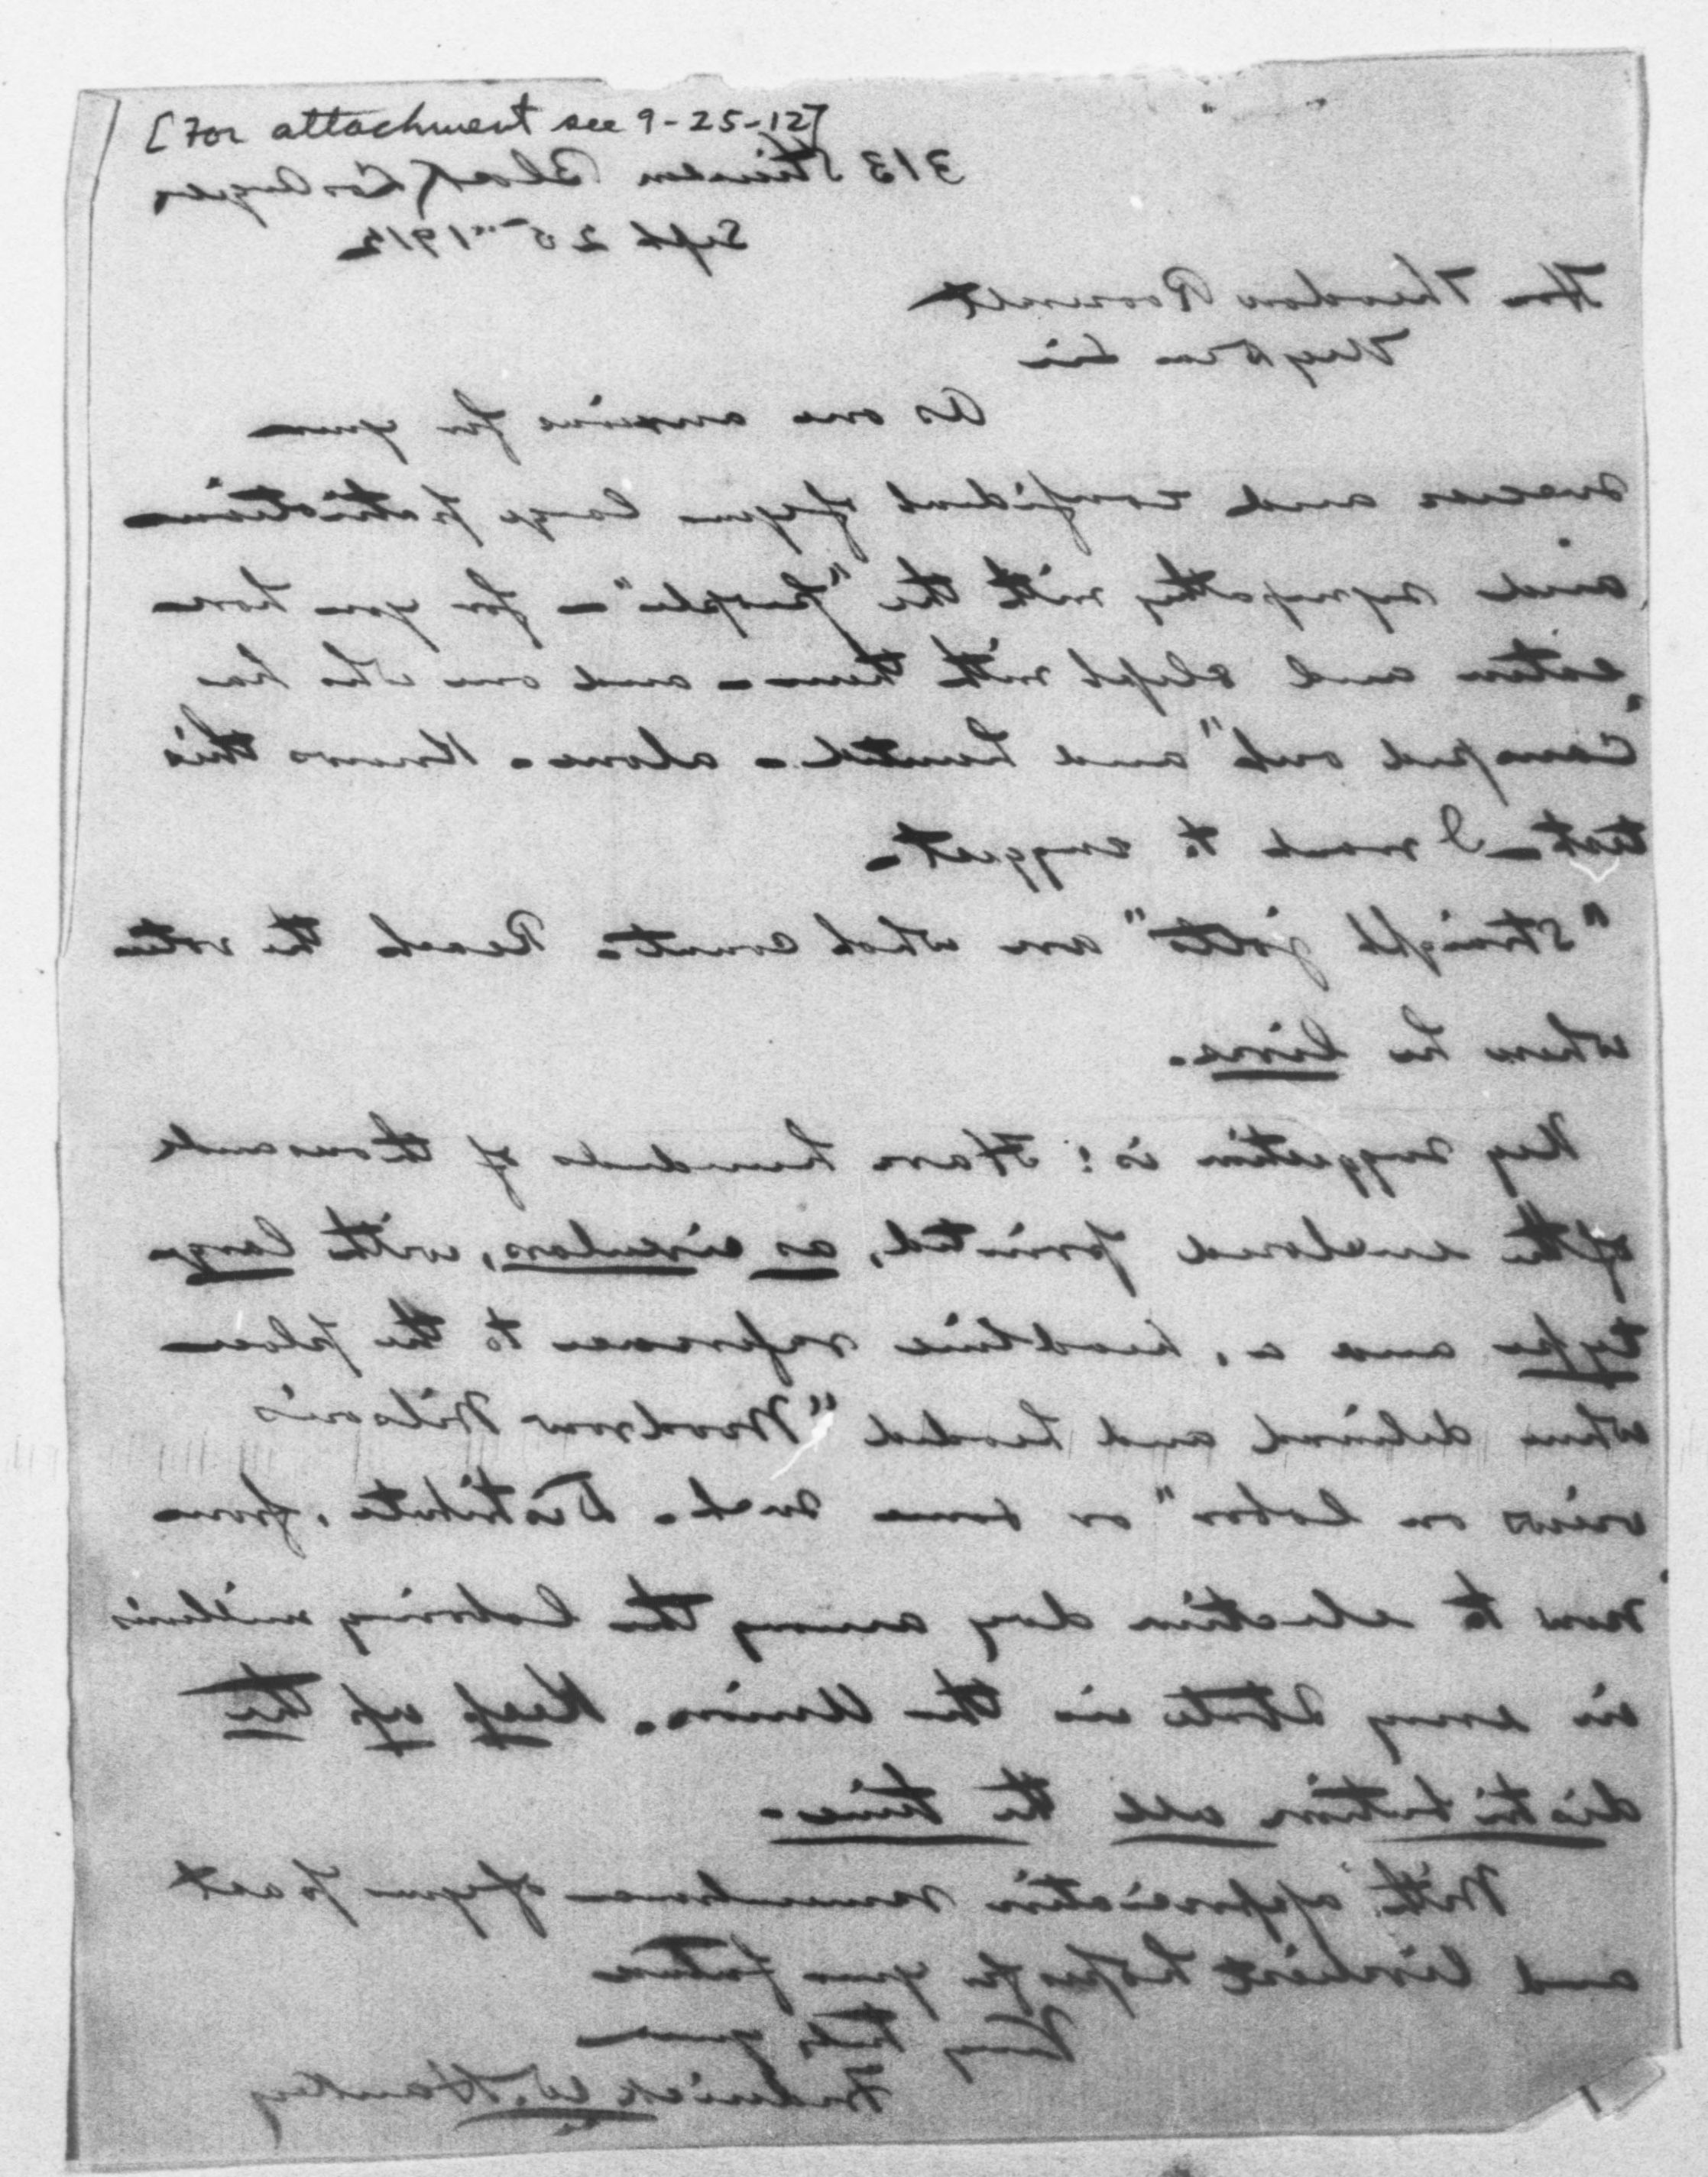 [For attachment see 9-25-12]
313 Block, Los Angeles
Sept 25th 1912
Hon Theodore Roosevelt
My Dear Sir
As one anxious for your
success and confident of your large patriotism
and sympathy with the "people" – for you have
eaten and slept with them – and one who has
"Camped out" and hunted – alone – knows this
test – I want to suggest.
"Straight jolts" are what count. Reach the voter
where he lives.
My suggestion is: Have hundreds of thousands
of the enclosed printed, as circulars, with large
type and a, headline reference to the place
where delivered and headed "Woodrow Wilson's
views on labor" or some such. Distribute, from
now to election day among the laboring millions
in every State in the Union. Keep up the
distribution all the time.
With appreciative remembrance of your past
and liveliest hopes for your future
Very truly yours
Frederick W.